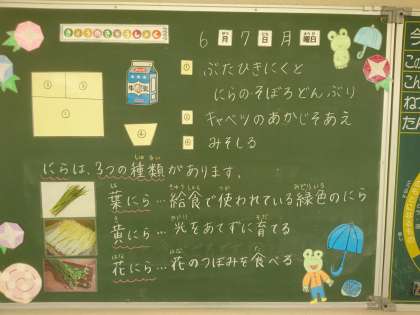 きょうのきゅうしょく
6月7日月曜日
① ぶたひきにくと
にらのそぼろどんぶり
② キャベツのあかじそあえ
④ みそしる
牛乳
③ ②
①
④
にらは、3つの種類があります。
葉にら…給食で使われている緑色のにら
黄にら…光をあてずに育てる
花にら…花のつぼみを食べる